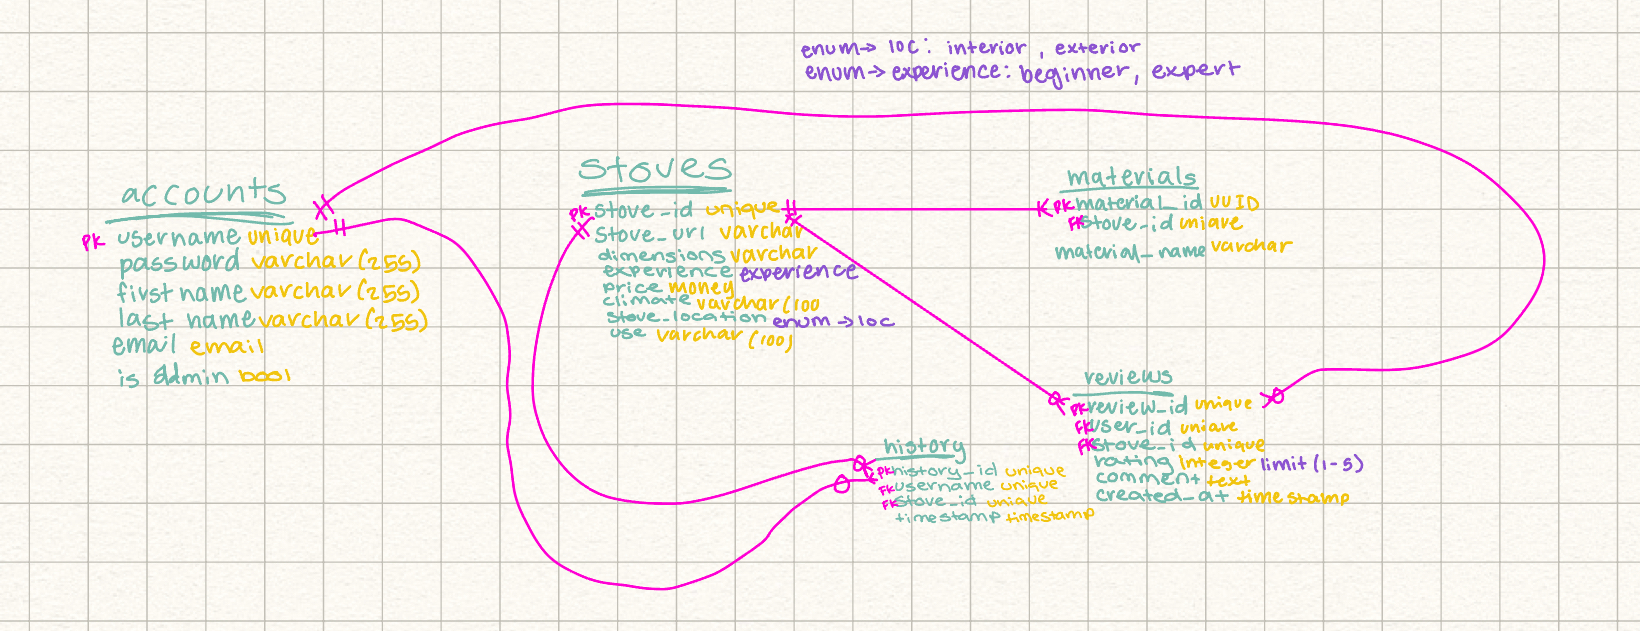 enum→ loc: interior, exterior
enum→ experience: beginner, expert
accounts
PK username unique
password varchar(255)
first name varchar(255)
last name varchar(255)
email email
is admin bool
stoves
PK stove_id unique
stove_url varchar
dimensions varchar
experience experience
price money
climate varchar(100
stove_location enum→loc
use varchar (100)
materials
PK material_id UUID
FK stove_id unique
material_name varchar
reviews
PK review_id unique
FK user_id unique
FK stove_id unique
rating Integer limit (1-5)
comment text
created_at timestamp
history
PK history_id unique
FK username unique
FK stove_id unique
timestamp timestamp